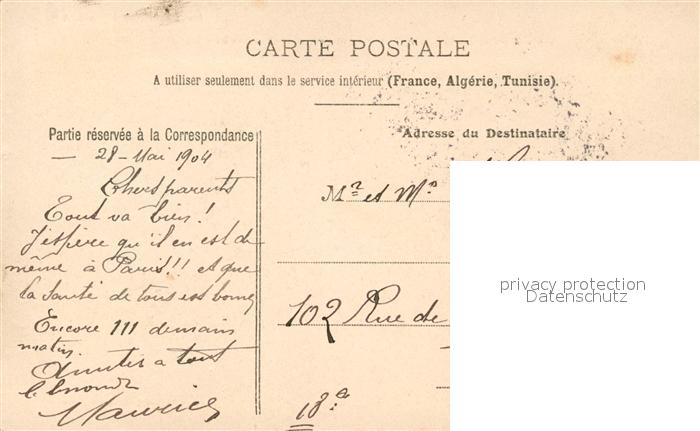 CARTE POSTALE
A utiliser seulement dans le service intérieur (France, Algérie, Tunisie).
Partie réservée à la Correspondance
Adresse du Destinataire
— 28 - Mai 1904
Chers parents
Tout va bien!
J'espère qu'il en est de
même à Paris!!! et que
la santé de tous est bonne
Encore 111 demain
matin.
Amitiés a tout
le monde
Maurice
Mr et Me
102 Rue de
18e
privacy protection
Datenschutz